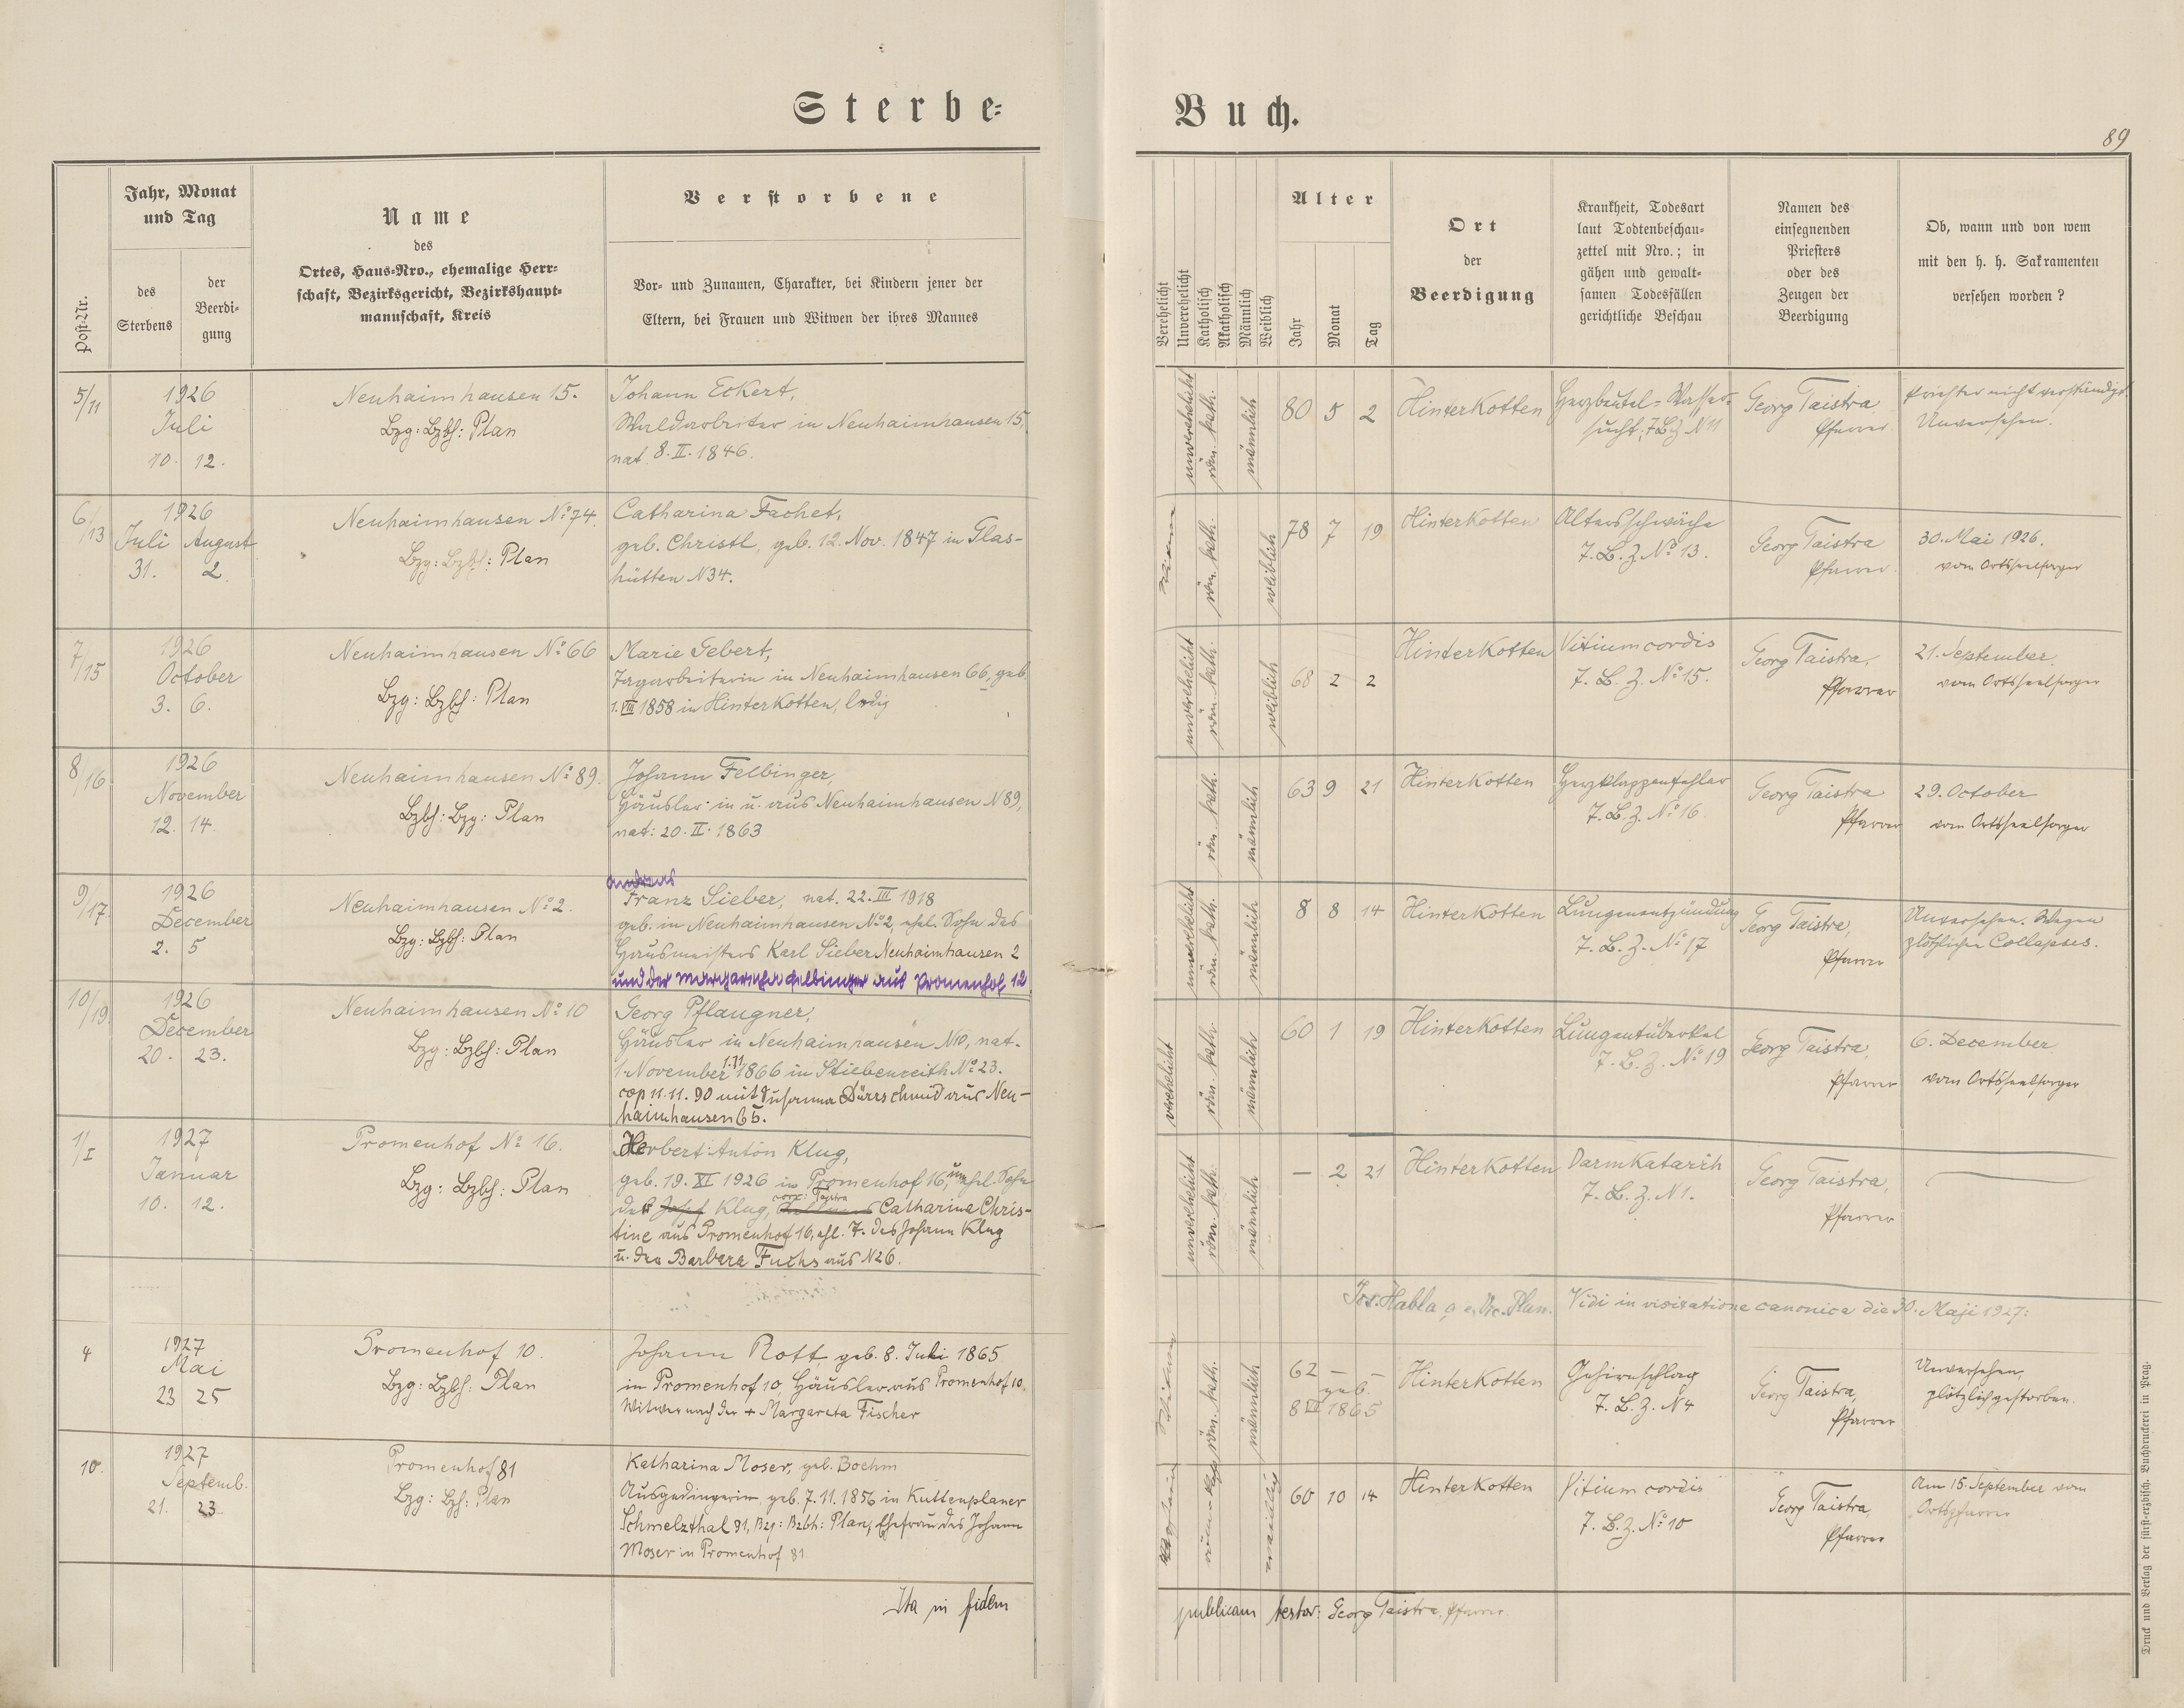 Sterbe-
Buch.
89
Post-Nr.
Jahr, Monat
und Tag
des
Sterbens
der
Beerdi-
gung
Name
des
Ortes, Haus-Nro., ehemalige Herr-
schaft, Bezirksgericht, Bezirkshaupt-
mannschaft, Kreis
Verstorbene
Vor- und Zunamen, Charakter, bei Kindern jener der
Eltern, bei Frauen und Witwen der ihres Mannes
Verehelicht
Unverehelicht
Katholisch
Akatholisch
Männlich
Weiblich
Alter
Jahr
Monat
Tag
Ort
der
Beerdigung
Krankheit, Todesart
laut Todtenbeschau-
zettel mit Nro.; in
gähen und gewalt-
samen Todesfällen
gerichtliche Beschau
Namen des
einsegnenden
Priesters
oder des
Zeugen der
Beerdigung
Ob, wann und von wem
mit den h. h. Sakramenten
versehen worden?
5/11
1926
Juli
10. 12.
Neuhaimhausen 15.
Bzg: Bzbh: Plan
Johann Eckert,
Waldarbeiter in Neuhaimhausen 15,
nat. 8. II. 1846.
unverehelicht
röm. kath.
männlich
80 5 2
Hinterkotten
Herzbeutel-Wasser-
sucht, T.B.Z N 11
Georg Taistra
Pfarrer.
Priester nicht verständigt.
Unversehen.
6/13
1926
Juli August
31. 2.
Neuhaimhausen No 74.
Bzg: Bzbh: Plan
Catharina Fachet,
geb. Christl, geb. 12. Nov. 1847 in Glas-
hütten N 34.
röm. kath.
weiblich
78 7 19
Hinterkotten
Altersschwäche
T. B. Z. No 13.
Georg Taistra
Pfarrer.
30. Mai 1926.
vom Ortsseelsorger
7/15
1926
October
3. 6.
Neuhaimhausen No 66
Bzg: Bzbh: Plan
Marie Gebert,
Tagarbeiterin in Neuhaimhausen 66, geb.
1. VIII 1858 in Hinterkotten, ledig
unverehelicht
röm. kath.
weiblich
68 2 2
Hinterkotten
Vitium cordis
T. B. Z. No 15.
Georg Taistra,
Pfarrer
21. September.
vom Ortsseelsorger
8/16
1926
November
12. 14.
Neuhaimhausen No 89.
Bzbh: Bzg: Plan
Johann Felbinger,
Häusler in u. aus Neuhaimhausen N 89,
nat: 20. II. 1863
röm. kath.
männlich
63 9 21
Hinterkotten
Herzklappenfehler
T. B. Z. No 16.
Georg Taistra
Pfarrer
29. October
vom Ortsseelsorger
9/17.
1926
December
2. 5
Neuhaimhausen No 2.
Bzg: Bzbh: Plan
Andreas
Franz Sieber, nat. 22. III 1918
geb. in Neuhaimhausen No 2, ehel. Sohn des
Hausmeisters Karl Sieber Neuhaimhausen 2
und der Margaretha Felbinger aus Promenhof 12.
unverehelicht
röm. kath.
männlich
8 8 14
Hinterkotten
Lungenentzündung
T. B. Z. No 17
Georg Taistra,
Pfarrer
Unversehen. Wegen
plötzlichen Collapses.
10/19.
1926
December
20. 23.
Neuhaimhausen No 10
Bzg: Bzbh: Plan
Georg Pflaugner,
Häusler in Neuhaimhausen N 10, nat.
1. November 1.11. 1866 in Stiebenreith No 23.
cop 11. 11. 90 mit Susanna Dürrschmid aus Neu-
haimhausen 65.
verehelicht
röm. kath.
männlich
60 1 19
Hinterkotten
Lungentuberkel
T. B. Z. No 19
Georg Taistra,
Pfarrer
6. December
vom Ortsseelsorger
1/I
1927
Januar
10. 12.
Promenhof No 16.
Bzg: Bzbh: Plan
Herbert Anton Klug,
geb. 19. XI 1926 in Promenhof 16, unehl. Sohn
der Josef Klug, corr: Taistra Catharina Chris-
tine aus Promenhof 16, ehl. T. des Johann Klug
u. der Barbara Fuchs aus N 26.
unverehelicht
röm. kath.
männlich
— 2 21
Hinterkotten
Darmkatarrh
T. B. Z. N 1.
Georg Taistra,
Pfarrer
Jos. Habla Plan. Vidi in visitatione canonica die 30. Maji 1927:
4
1927
Mai
23 25
Promenhof 10.
Bzg: Bzbh: Plan
Johann Rott, geb. 8. Juli 1865
in Promenhof 10, Häusler aus Promenhof 10.
Witwer nach der + Margareta Fischer
Witwer
röm. kath.
männlich
62 — —
geb.
8 VII 1865
Hinterkotten
Gehirnschlag
T. B. Z. N 4
Georg Taistra,
Pfarrer
Unversehen,
plötzlich gestorben.
10.
1927
Septemb.
21. 23
Promenhof 81
Bzg: Bzh: Plan
Katharina Moser, geb. Boehm
Ausgedingerin, geb. 7. 11. 1856 in Kuttenplaner
Schmelzthal 91, Bzg: Bzbh: Plan, Ehefrau des Johann
Moser in Promenhof 81
weiblich
60 10 14
Hinterkotten
Vitium cordis
T. B. Z. No 10
Georg Taistra,
Pfarrer
Am 15. September vom
Ortspfarrer
Ita in fidem
publicam testor: Georg Taistra, Pfarrer.
Druck und Verlag der fürst-erzbisch. Buchdruckerei in Prag.